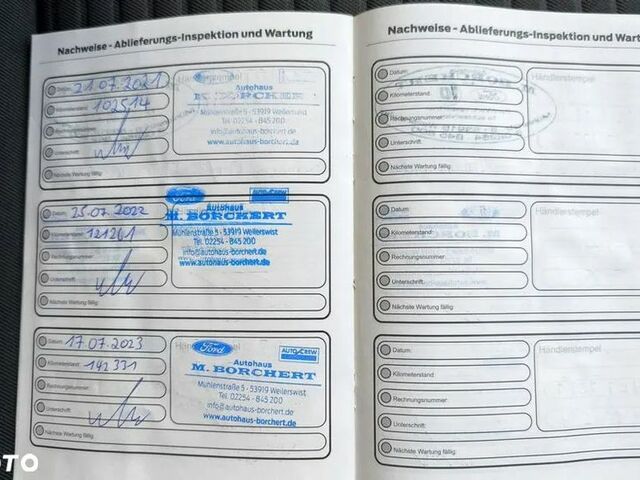 Nachweise - Ablieferungs-Inspektion und Wartung
Datum: 21.07.2021
Händlerstempel
Kilometerstand: 102514
Unterschrift:
Nächste Wartung fällig:
Autohaus
M. BORCHERT
Mühlenstraße 5 - 53919 Weilerswist
Tel. 02254 - 845 200
info@autohaus-borchert.de
www.autohaus-borchert.de
Datum: 25.07.2022
Kilometerstand: 121261
Rechnungsnummer:
Unterschrift:
Nächste Wartung fällig:
Ford
AUTO CREW
Autohaus
M. BORCHERT
Mühlenstraße 5 - 53919 Weilerswist
Tel. 02254 - 845 200
info@autohaus-borchert.de
www.autohaus-borchert.de
Datum: 17.07.2023
Kilometerstand: 142331
Rechnungsnummer:
Unterschrift:
Nächste Wartung fällig:
Ford
AUTO CREW
Autohaus
M. BORCHERT
Mühlenstraße 5 - 53919 Weilerswist
Tel. 02254 - 845 200
info@autohaus-borchert.de
www.autohaus-borchert.de
Nachweise - Ablieferungs-Inspektion und Wart
Datum:
Händlerstempel
Kilometerstand:
Rechnungsnummer:
Unterschrift:
Nächste Wartung fällig:
Datum:
Händlerstempel
Kilometerstand:
Rechnungsnummer:
Unterschrift:
Nächste Wartung fällig:
Datum:
Händlerstempel
Kilometerstand:
Rechnungsnummer:
Unterschrift:
Nächste Wartung fällig: